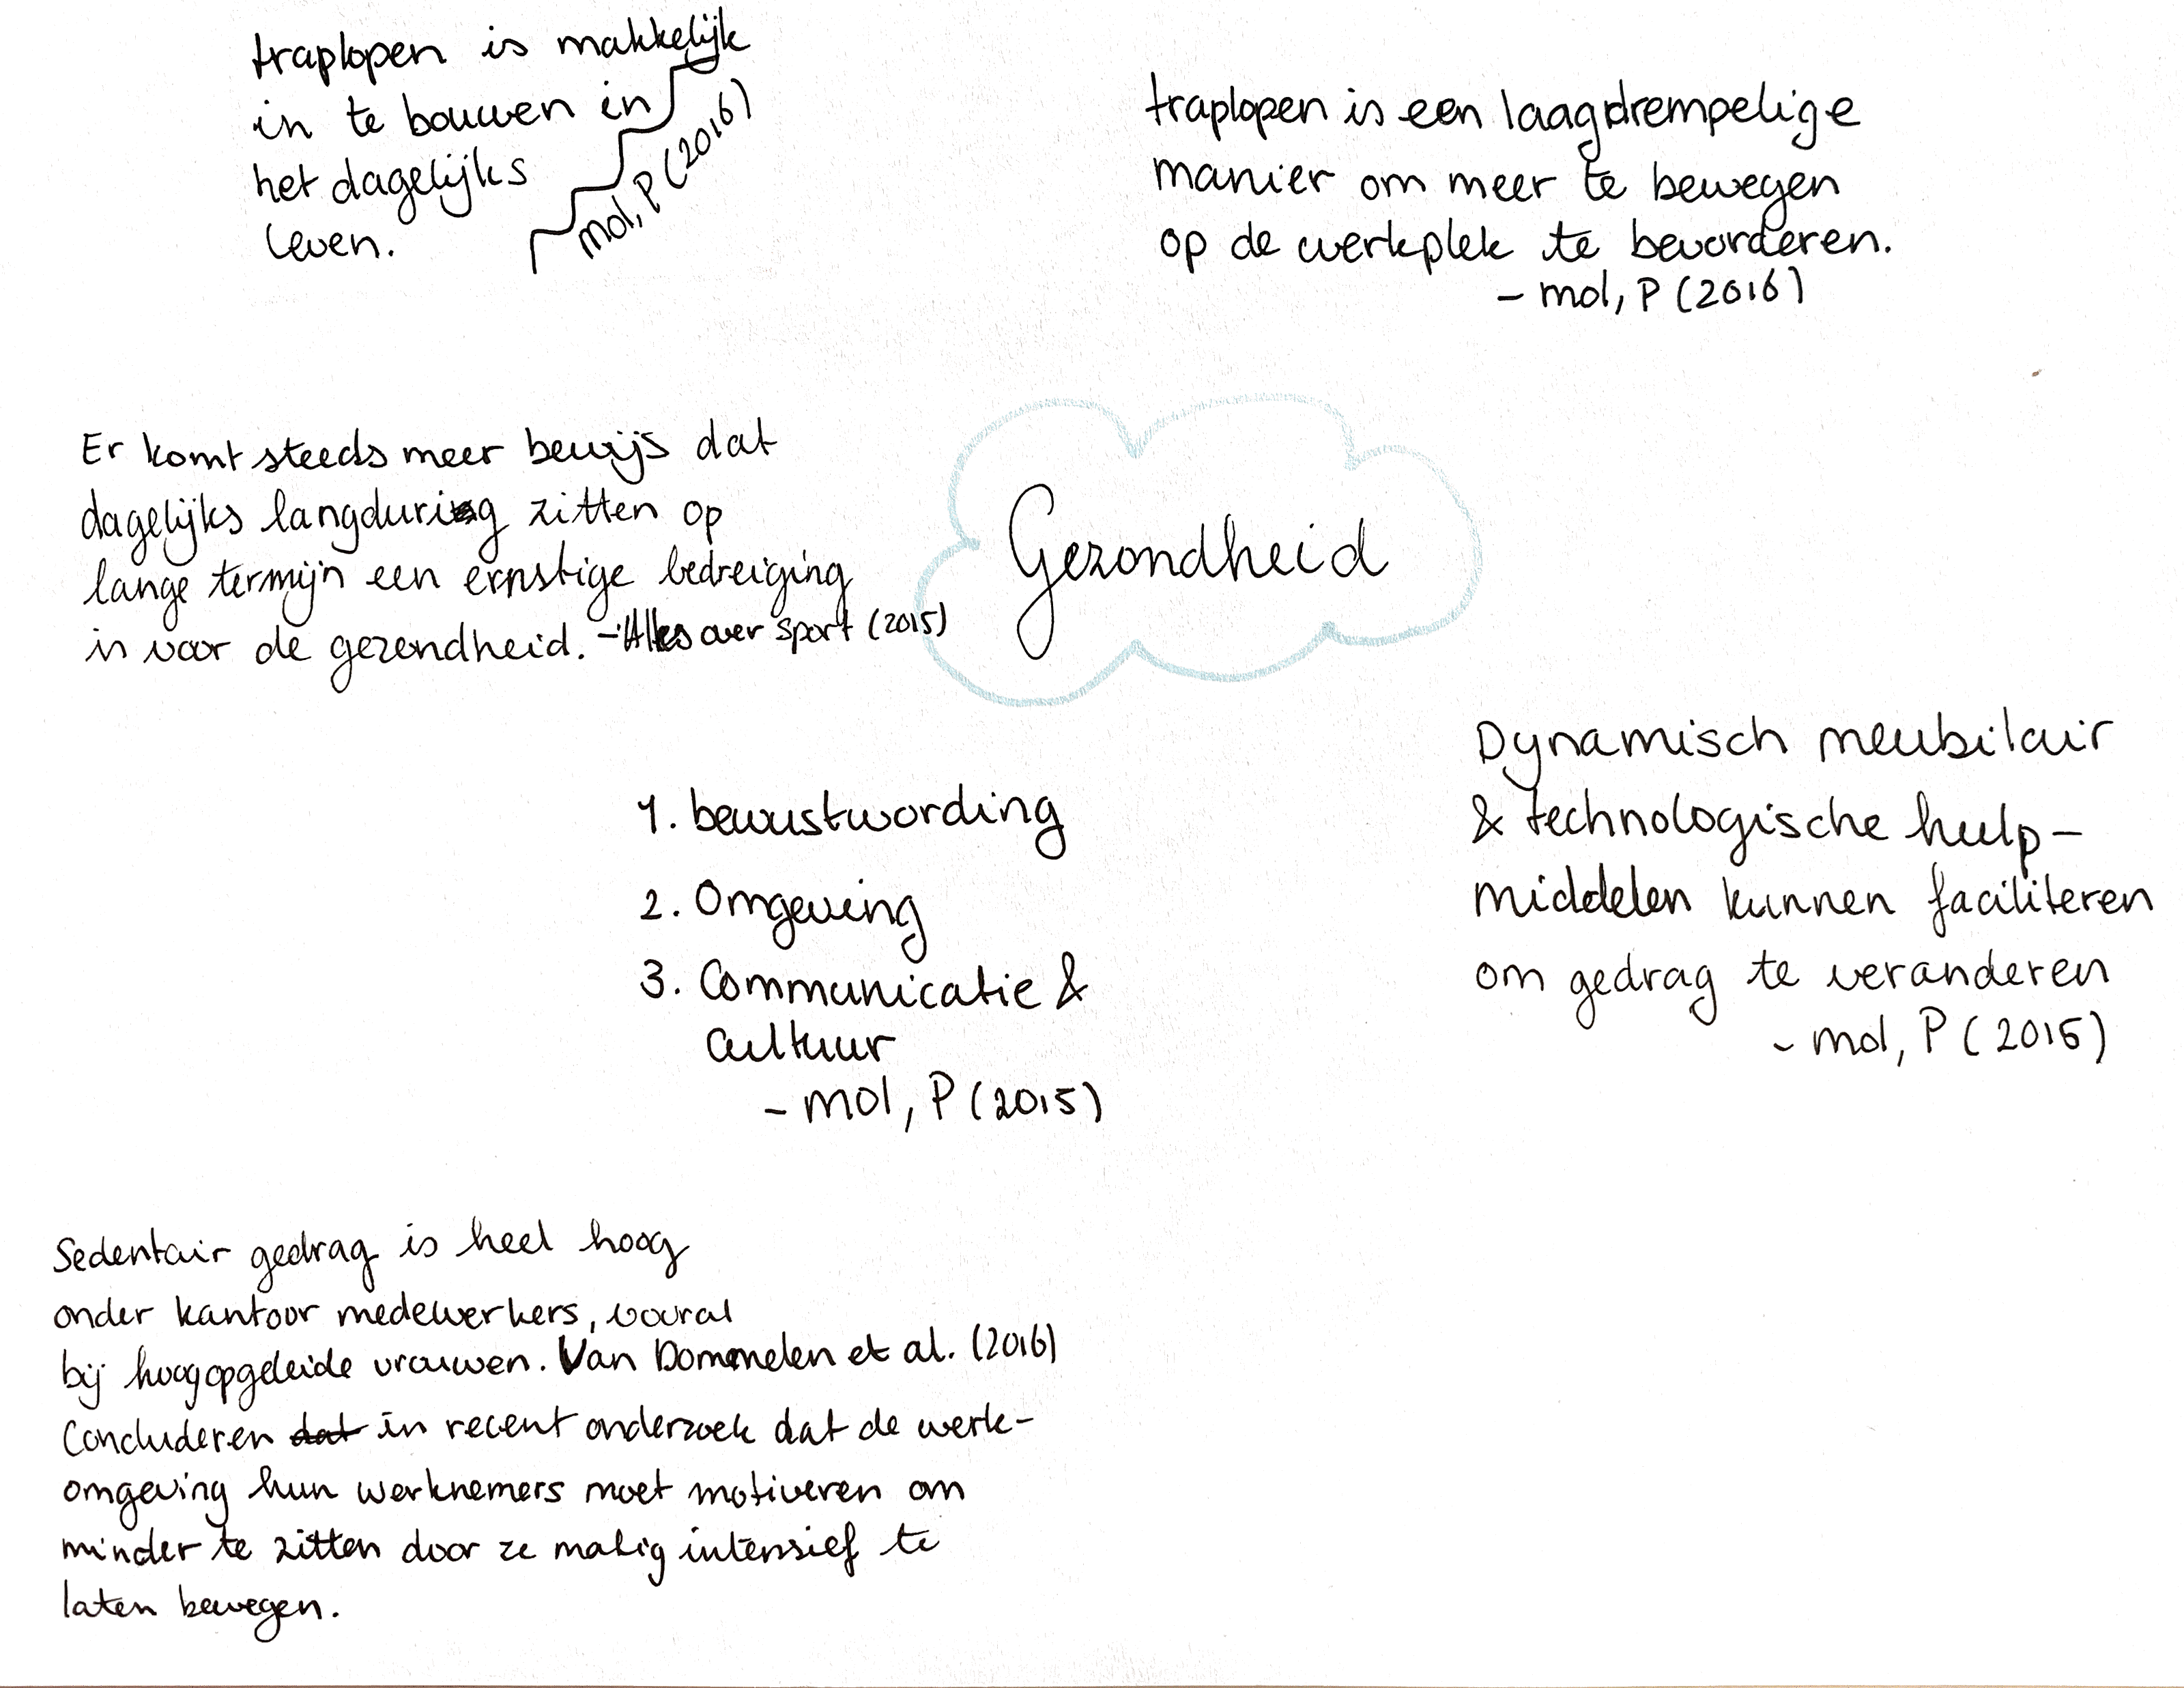 traplopen is makkelijk
in te bouwen in
het dagelijks
leven.
mol, P (2016)
traplopen is een laagdrempelige
manier om meer te bewegen
op de werkplek te bevorderen.
- mol, P (2016)
Er komt steeds meer bewijs dat
dagelijks langdurig zitten op
lange termijn een ernstige bedreiging
is voor de gezondheid. - Alles over sport (2015)
Gezondheid
1. bewustwording
2. Omgeving
3. Communicatie &
Cultuur
- mol, P (2015)
Dynamisch meubilair
& technologische hulp-
middelen kunnen faciliteren
om gedrag te veranderen
- mol, P (2015)
Sedentair gedrag is heel hoog
onder kantoor medewerkers, vooral
bij hoogopgeleide vrouwen. Van Dommelen et al. (2016)
Concluderen dat in recent onderzoek dat de werk-
omgeving hun werknemers moet motiveren om
minder te zitten door ze matig intensief te
laten bewegen.